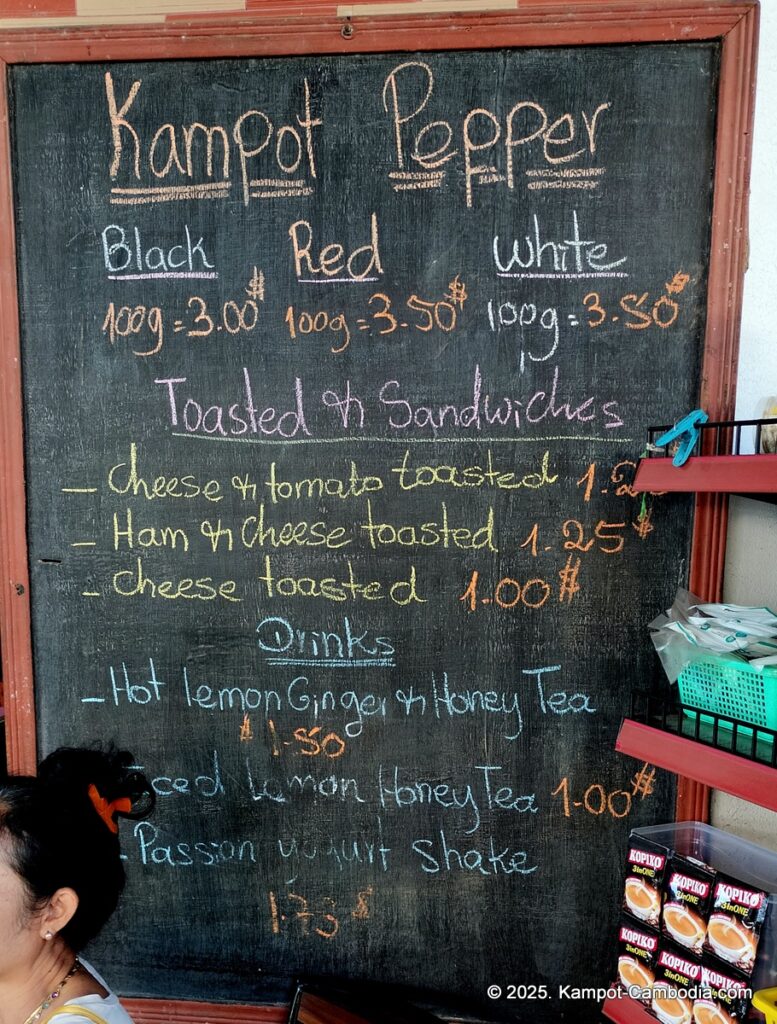 Kampot Pepper
Black Red White
100g = 3.00$ 100g = 3.50$ 100g = 3.50$
Toasted & Sandwiches
- Cheese & tomato toasted
- Ham & Cheese toasted 1.25$
- Cheese toasted 1.00$
Drinks
- Hot lemon Ginger & Honey Tea
$ 1.50
Iced Lemon Honey Tea 1.00$
- Passion yogurt shake
KOPIKO KOPIKO KOPIKO
3in ONE 3in ONE 3in ONE
KOPIKO KOPIKO KOPIKO
3in ONE 3in ONE 3in ONE
© 2025. Kampot-Cambodia.com